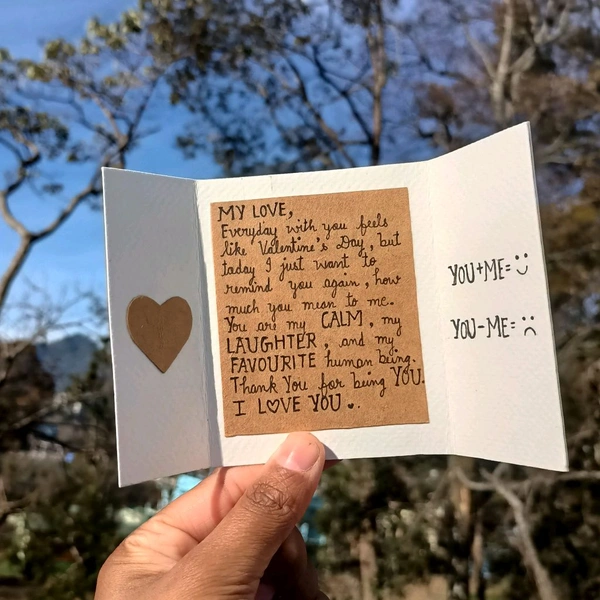 MY LOVE,
Everyday with you feels
like Valentine's Day, but
today I just want to
remind you again, how
much you mean to me.
You are my CALM, my
LAUGHTER, and my
FAVOURITE human being.
Thank You for being YOU.
I L♡VE YOU ♥.
YOU+ME= :)
YOU-ME= :(